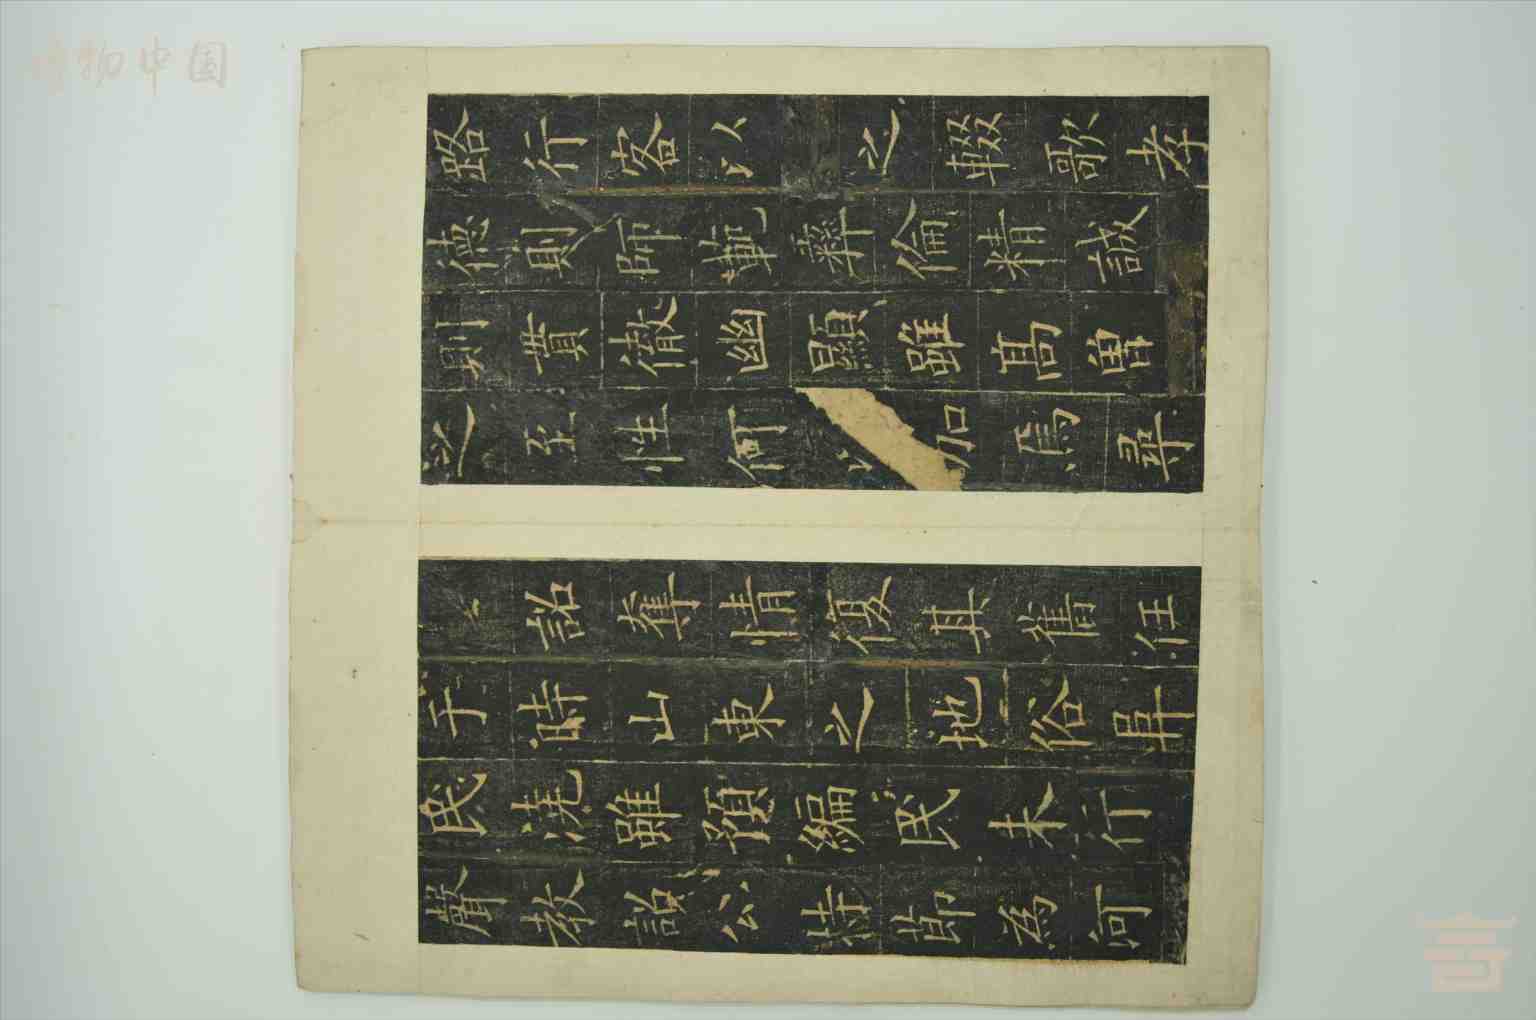 路行客以之輟歌孝
德則師範彝倫精誠
則貫徹幽顯雖高曾
之至性何以加焉尋
詔奪情復其舊任
于時山東之地俗阜
民澆雖預編民未行
聲教詔公持節為河
博物中国